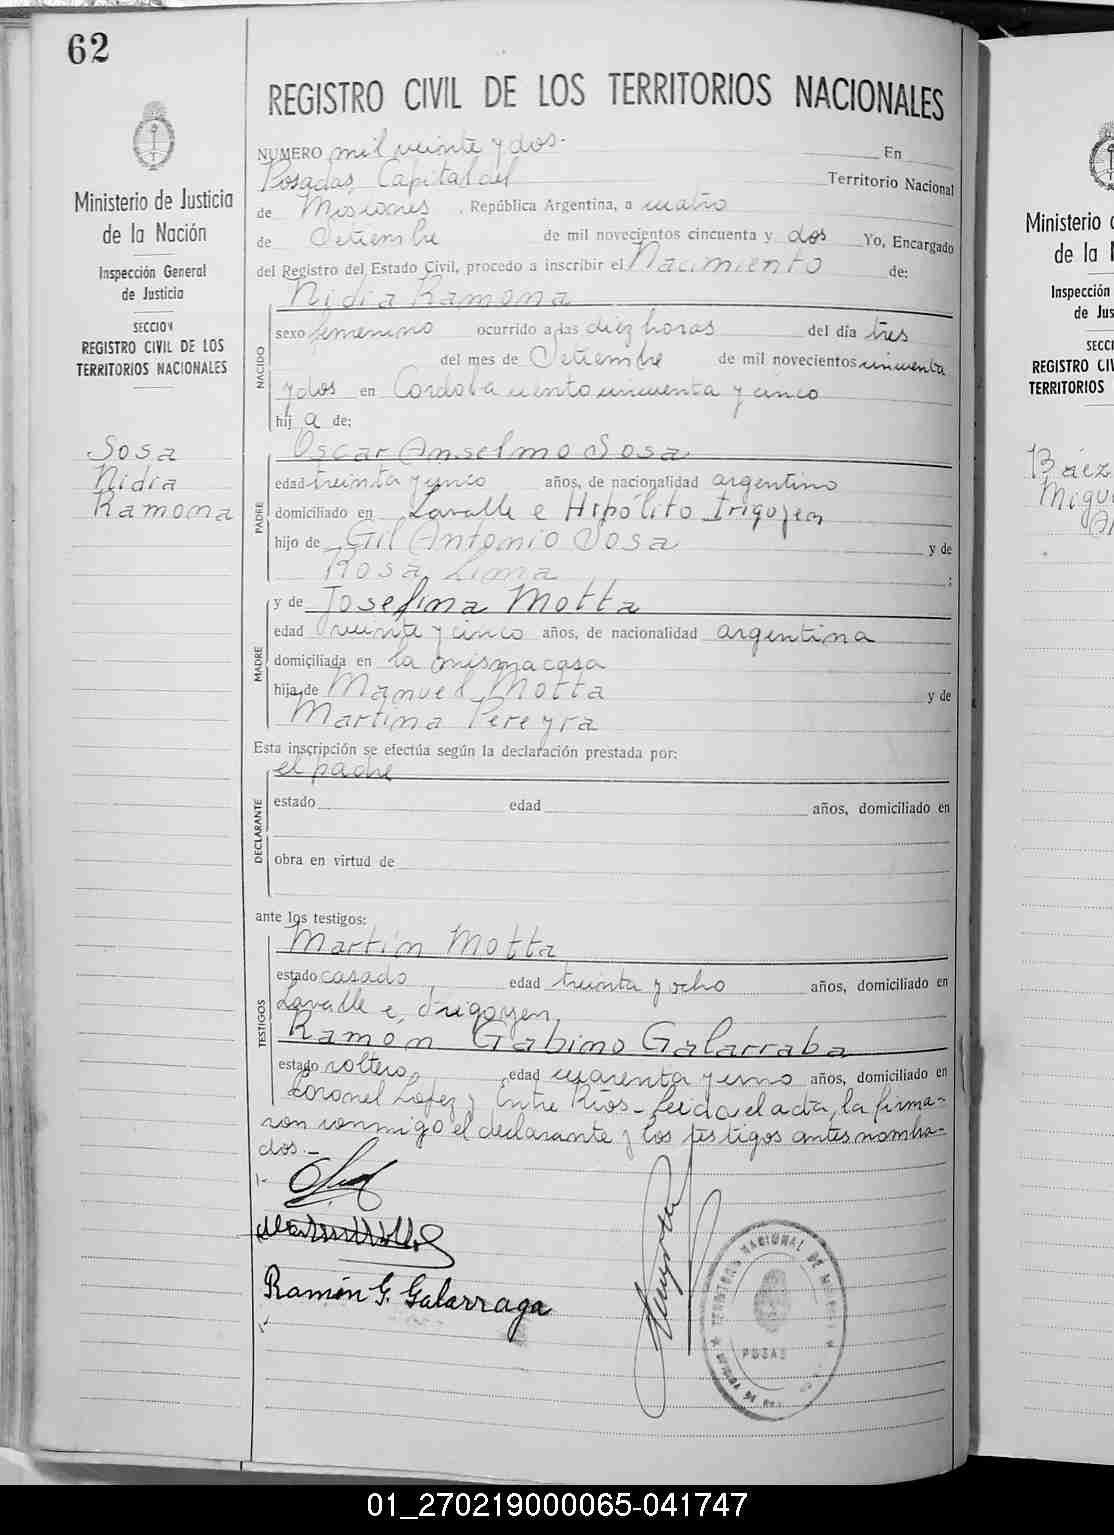 62
REGISTRO CIVIL DE LOS TERRITORIOS NACIONALES
Ministerio de Justicia
de la Nación
Inspección General
de Justicia
SECCION
REGISTRO CIVIL DE LOS
TERRITORIOS NACIONALES
Sosa
Nidia
Ramona
NUMERO mil veinte y dos.- En
Posadas, Capital del Territorio Nacional
de Misiones, República Argentina, a cuatro
de Setiembre de mil novecientos cincuenta y dos Yo, Encargado
del Registro del Estado Civil, procedo a inscribir el Nacimiento de:
NACIDO
Nidia Ramona
sexo femenino ocurrido a las diez horas del día tres
del mes de Setiembre de mil novecientos cincuenta
y dos en Cordoba ciento cincuenta y cinco
hij a de:
PADRE
Oscar Anselmo Sosa
edad treinta y cinco años, de nacionalidad argentino
domiciliado en Lavalle e Hipólito Irigoyen
hijo de Gil Antonio Sosa y de
Rosa Lima ;
MADRE
y de Josefina Motta
edad veinte y cinco años, de nacionalidad argentina
domiciliada en la misma casa
hija de Manuel Motta y de
Martina Pereyra
Esta inscripción se efectúa según la declaración prestada por:
DECLARANTE
el padre
estado edad años, domiciliado en
obra en virtud de
ante los testigos:
TESTIGOS
Martín Motta
estado casado edad treinta y ocho años, domiciliado en
Lavalle e, Irigoyen
Ramón Gabino Galarraba
estado soltero, edad cuarenta y uno años, domiciliado en
Coronel López y Entre Ríos - Leida el acta, la firma-
ron conmigo el declarante y los testigos antes nombra-
dos.-
Ramón G. Galarraga
TERRITORIO NACIONAL DE
POSAS
Ministerio
de la
Inspección
de Jus
SECCI
REGISTRO CIV
TERRITORIOS
Báez
Migu
01_270219000065-041747